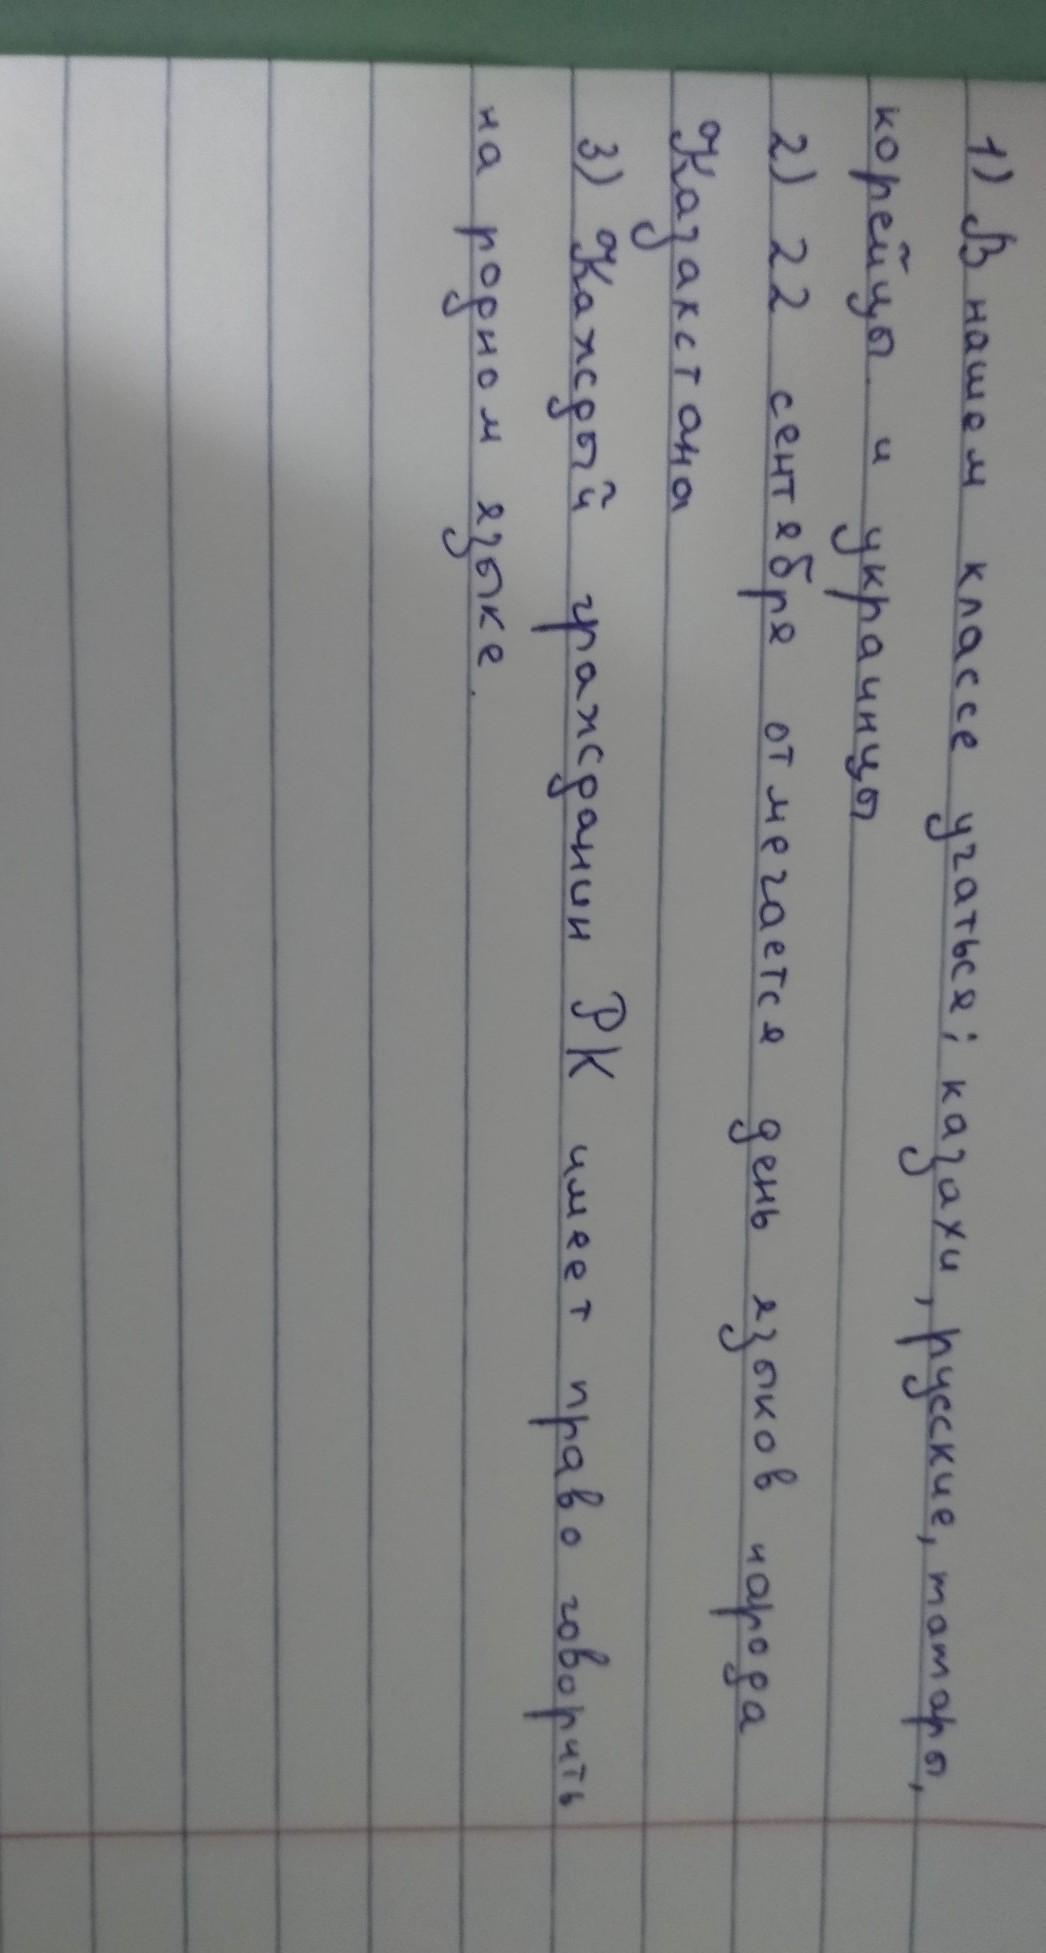 1) В нашем классе учаться; казахи, русские, татары,
корейцы и украинцы
2) 22 сентября отмечается день языков народа
Казакстана
3) Каждый гражданин РК имеет право говорить
на родном языке.